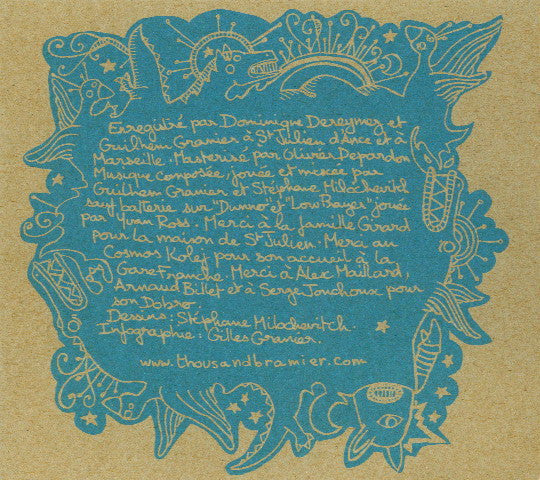 Enregistré par Dominique Dereymez et
Guilhem Granier à St Julien d'Ance et à
Marseille. Masterisé par Olivier Depardon
Musique composée jouée et mixée par
Guilhem Granier et Stéphane Milochevitch
sauf batterie sur "Dunno" et "Low Bayer" jouée
par Yvan Ross. Merci à la famille Girard
pour la maison de St Julien. Merci au
Cosmos Kolej pour son accueil à la
Gare Franche. Merci à Alex Maillard,
Arnaud Billet et à Serge Jouchoux pour
son Dobro.
Dessins : Stéphane Milochevitch.
Infographie : Gilles Granier.
www.thousandbramier.com